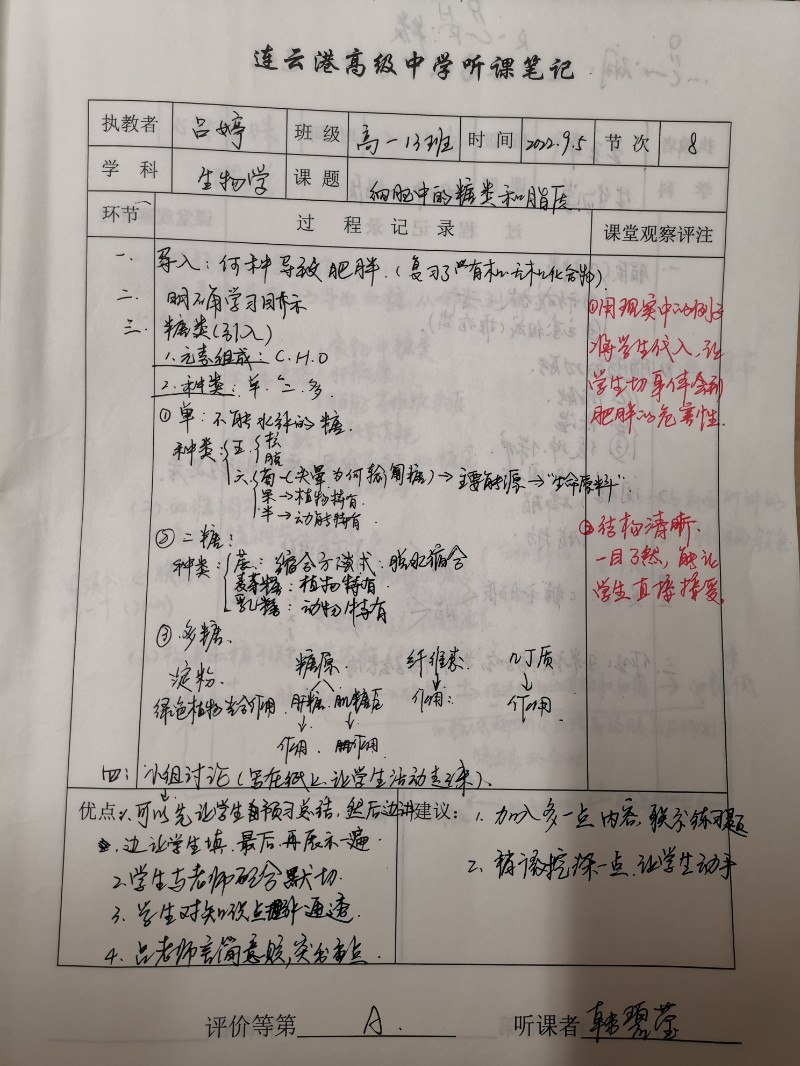 连云港高级中学听课笔记
执教者 吕婷 班级 高一13班 时间 2022.9.5 节次 8
学科 生物学 课题 细胞中的糖类和脂质
环节 过程记录 课堂观察评注
一. 导入：何种导致肥胖.（复习了有机、无机化合物）
二. 明确学习目标
三. 糖类(引入)
1.元素组成：C.H.O
2.种类：单.二.多.
①单：不能水解的糖.
种类：五 核
脱
六 葡→(失晕为何输葡糖)→主要能源→"生命原料"
果→植物特有
半→动物特有
②二糖：
种类：蔗：缩合方式：脱水缩合
麦芽糖：植物特有
乳糖：动物特有
③多糖.
淀粉. 糖原. 纤维素. 几丁质
绿色植物光合作用. 肝糖 肌糖原 作用： 作用.
作用. 作用
四：小组讨论(写在纸上.让学生活动起来).
①用现实中的例子
将学生代入，让
学生切身体会到
肥胖的危害性.
②结构清晰.
一目了然，能让
学生直接接受.
优点：1.可以先让学生自预习总结，然后边讲
边让学生填.最后.再展示一遍
2.学生与老师配合默切.
3.学生对知识点理解通透.
4.吕老师言简意赅，突出重点.
建议：1.加入多一点内容，联系练习题
2.稍微挖深一点.让学生动手
评价等第 A. 听课者 韩碧莹